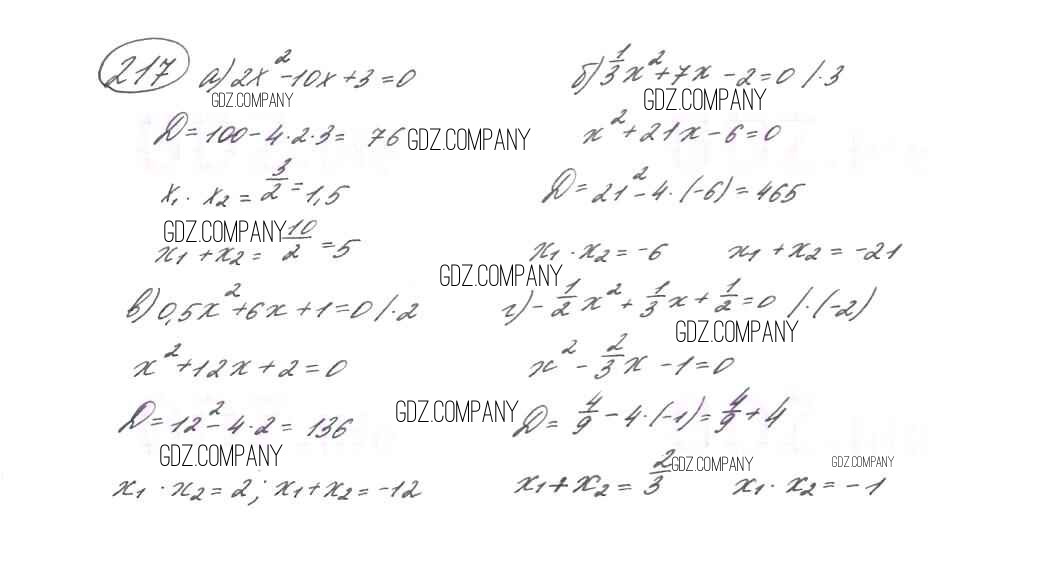 217 а) 2x² - 10x + 3 = 0
GDZ.COMPANY
D = 100 - 4·2·3 = 76 GDZ.COMPANY
x₁ · x₂ = 3/2 = 1,5
GDZ.COMPANY
x₁ + x₂ = 10/2 = 5
б) 1/3x² + 7x - 2 = 0 /·3
GDZ.COMPANY
x² + 21x - 6 = 0
D = 21² - 4·(-6) = 465
x₁ · x₂ = -6 x₁ + x₂ = -21
GDZ.COMPANY
в) 0,5x² + 6x + 1 = 0 /·2
x² + 12x + 2 = 0
D = 12² - 4·2 = 136
GDZ.COMPANY
x₁ · x₂ = 2; x₁ + x₂ = -12
г) - 1/2 x² + 1/3 x + 1/2 = 0 /·(-2)
GDZ.COMPANY
x² - 2/3 x - 1 = 0
GDZ.COMPANY
D = 4/9 - 4·(-1) = 4/9 + 4
GDZ.COMPANY
GDZ.COMPANY
x₁ + x₂ = 2/3 x₁ · x₂ = -1